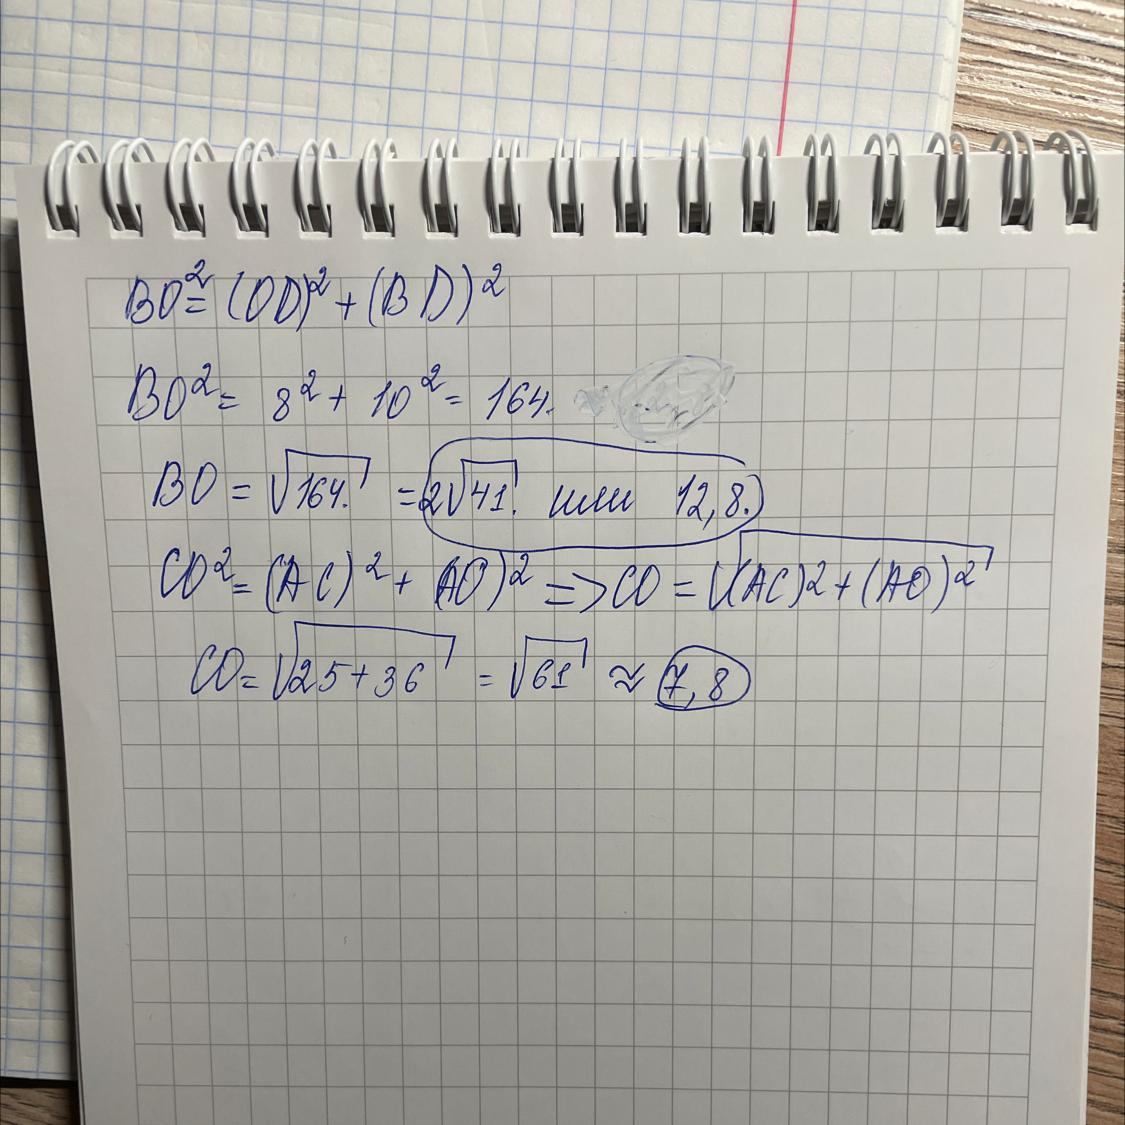 BO²= (OD)²+(BD)²
BO²= 8²+ 10²= 164.
BO = √164. = 2√41. или 12,8.
CO²=(AC)²+ (AO)² => CO = √(AC)²+(AO)²
CO= √25+36 = √61 ≈ 7,8